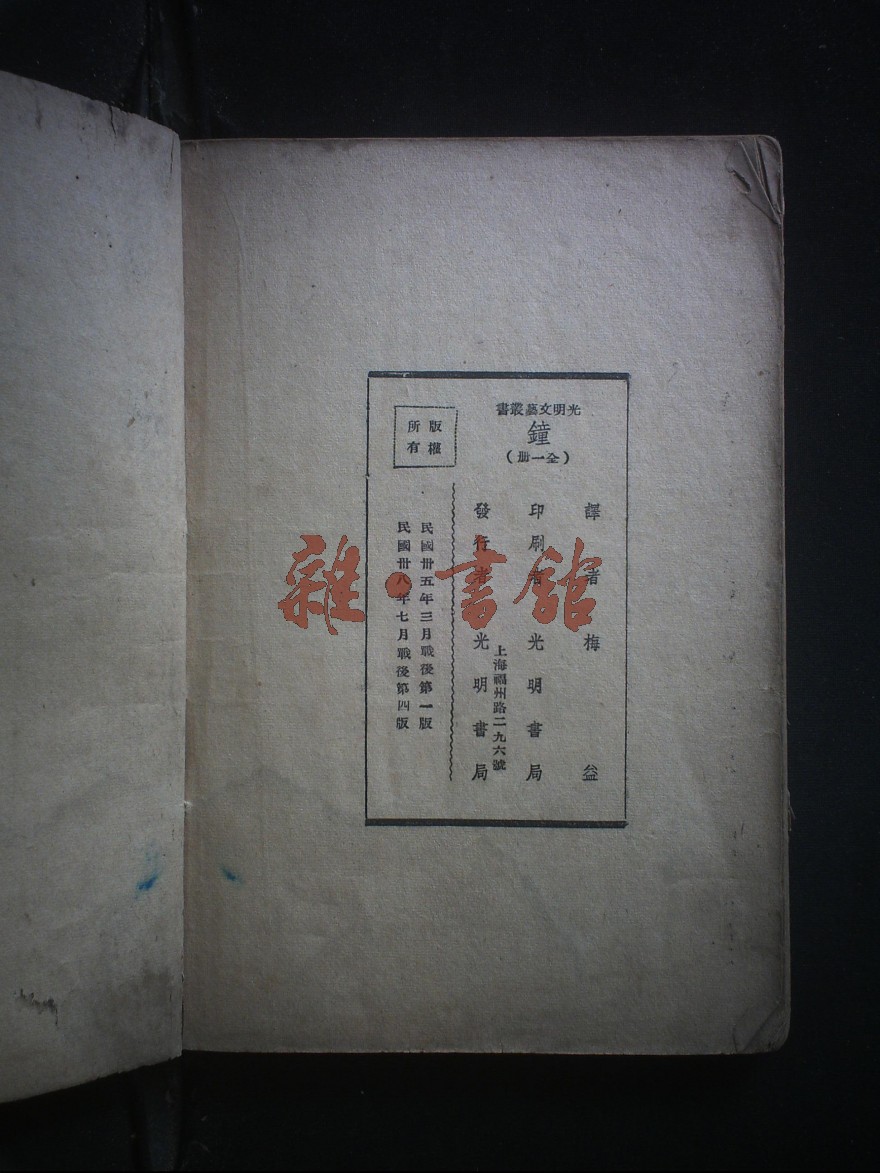 光明文藝叢書
鐘
(全一冊)
譯者 梅益
印刷者 光明書局
上海福州路二九六號
發行者 光明書局
版權
所有
民國卅五年三月戰後第一版
民國卅八年七月戰後第四版
雜·書館